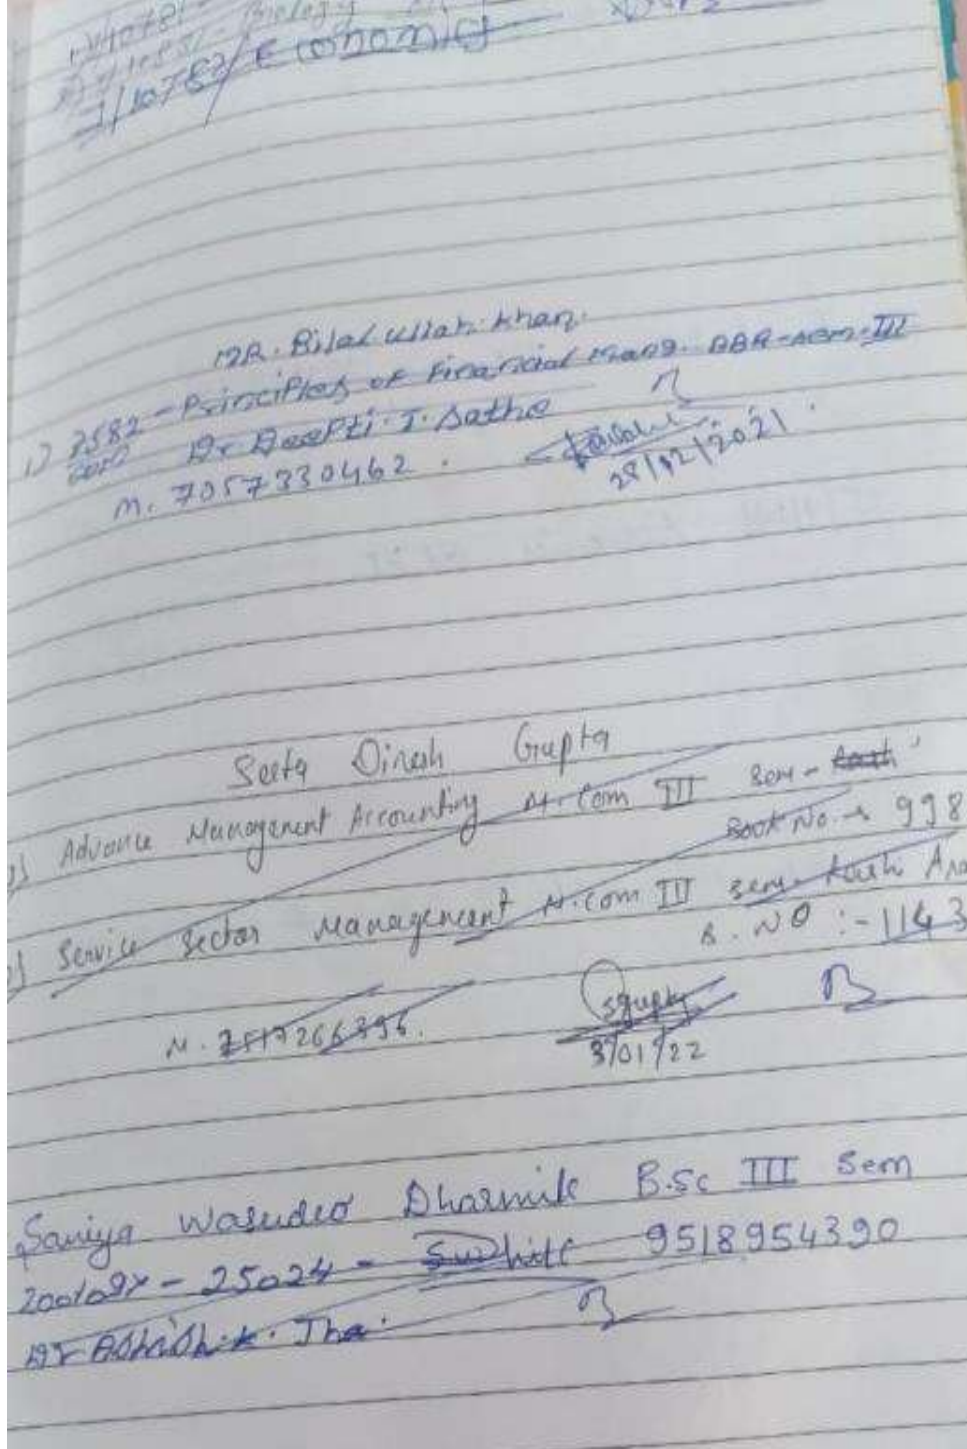 Biology
3/10782/Economics
MR. Bilal ullah khan.
1) 7582 - Principles of Financial Mang. BBA-sem-III
Dr Deepti. J. Sathe
M. 7057330462.
28/12/2021
Seeta Dinesh Gupta
1) Advance Management Accounting M.com III sem-
Book No. → 998
2) Service sector Management M.com III sem-
B. NO :- 1143
M. 7517266396.
sgupta
3/01/22
Saniya Wasudeo Dharmik B.Sc III Sem
- 25024 - 9518954390
Dr Ashish.k. Jha.